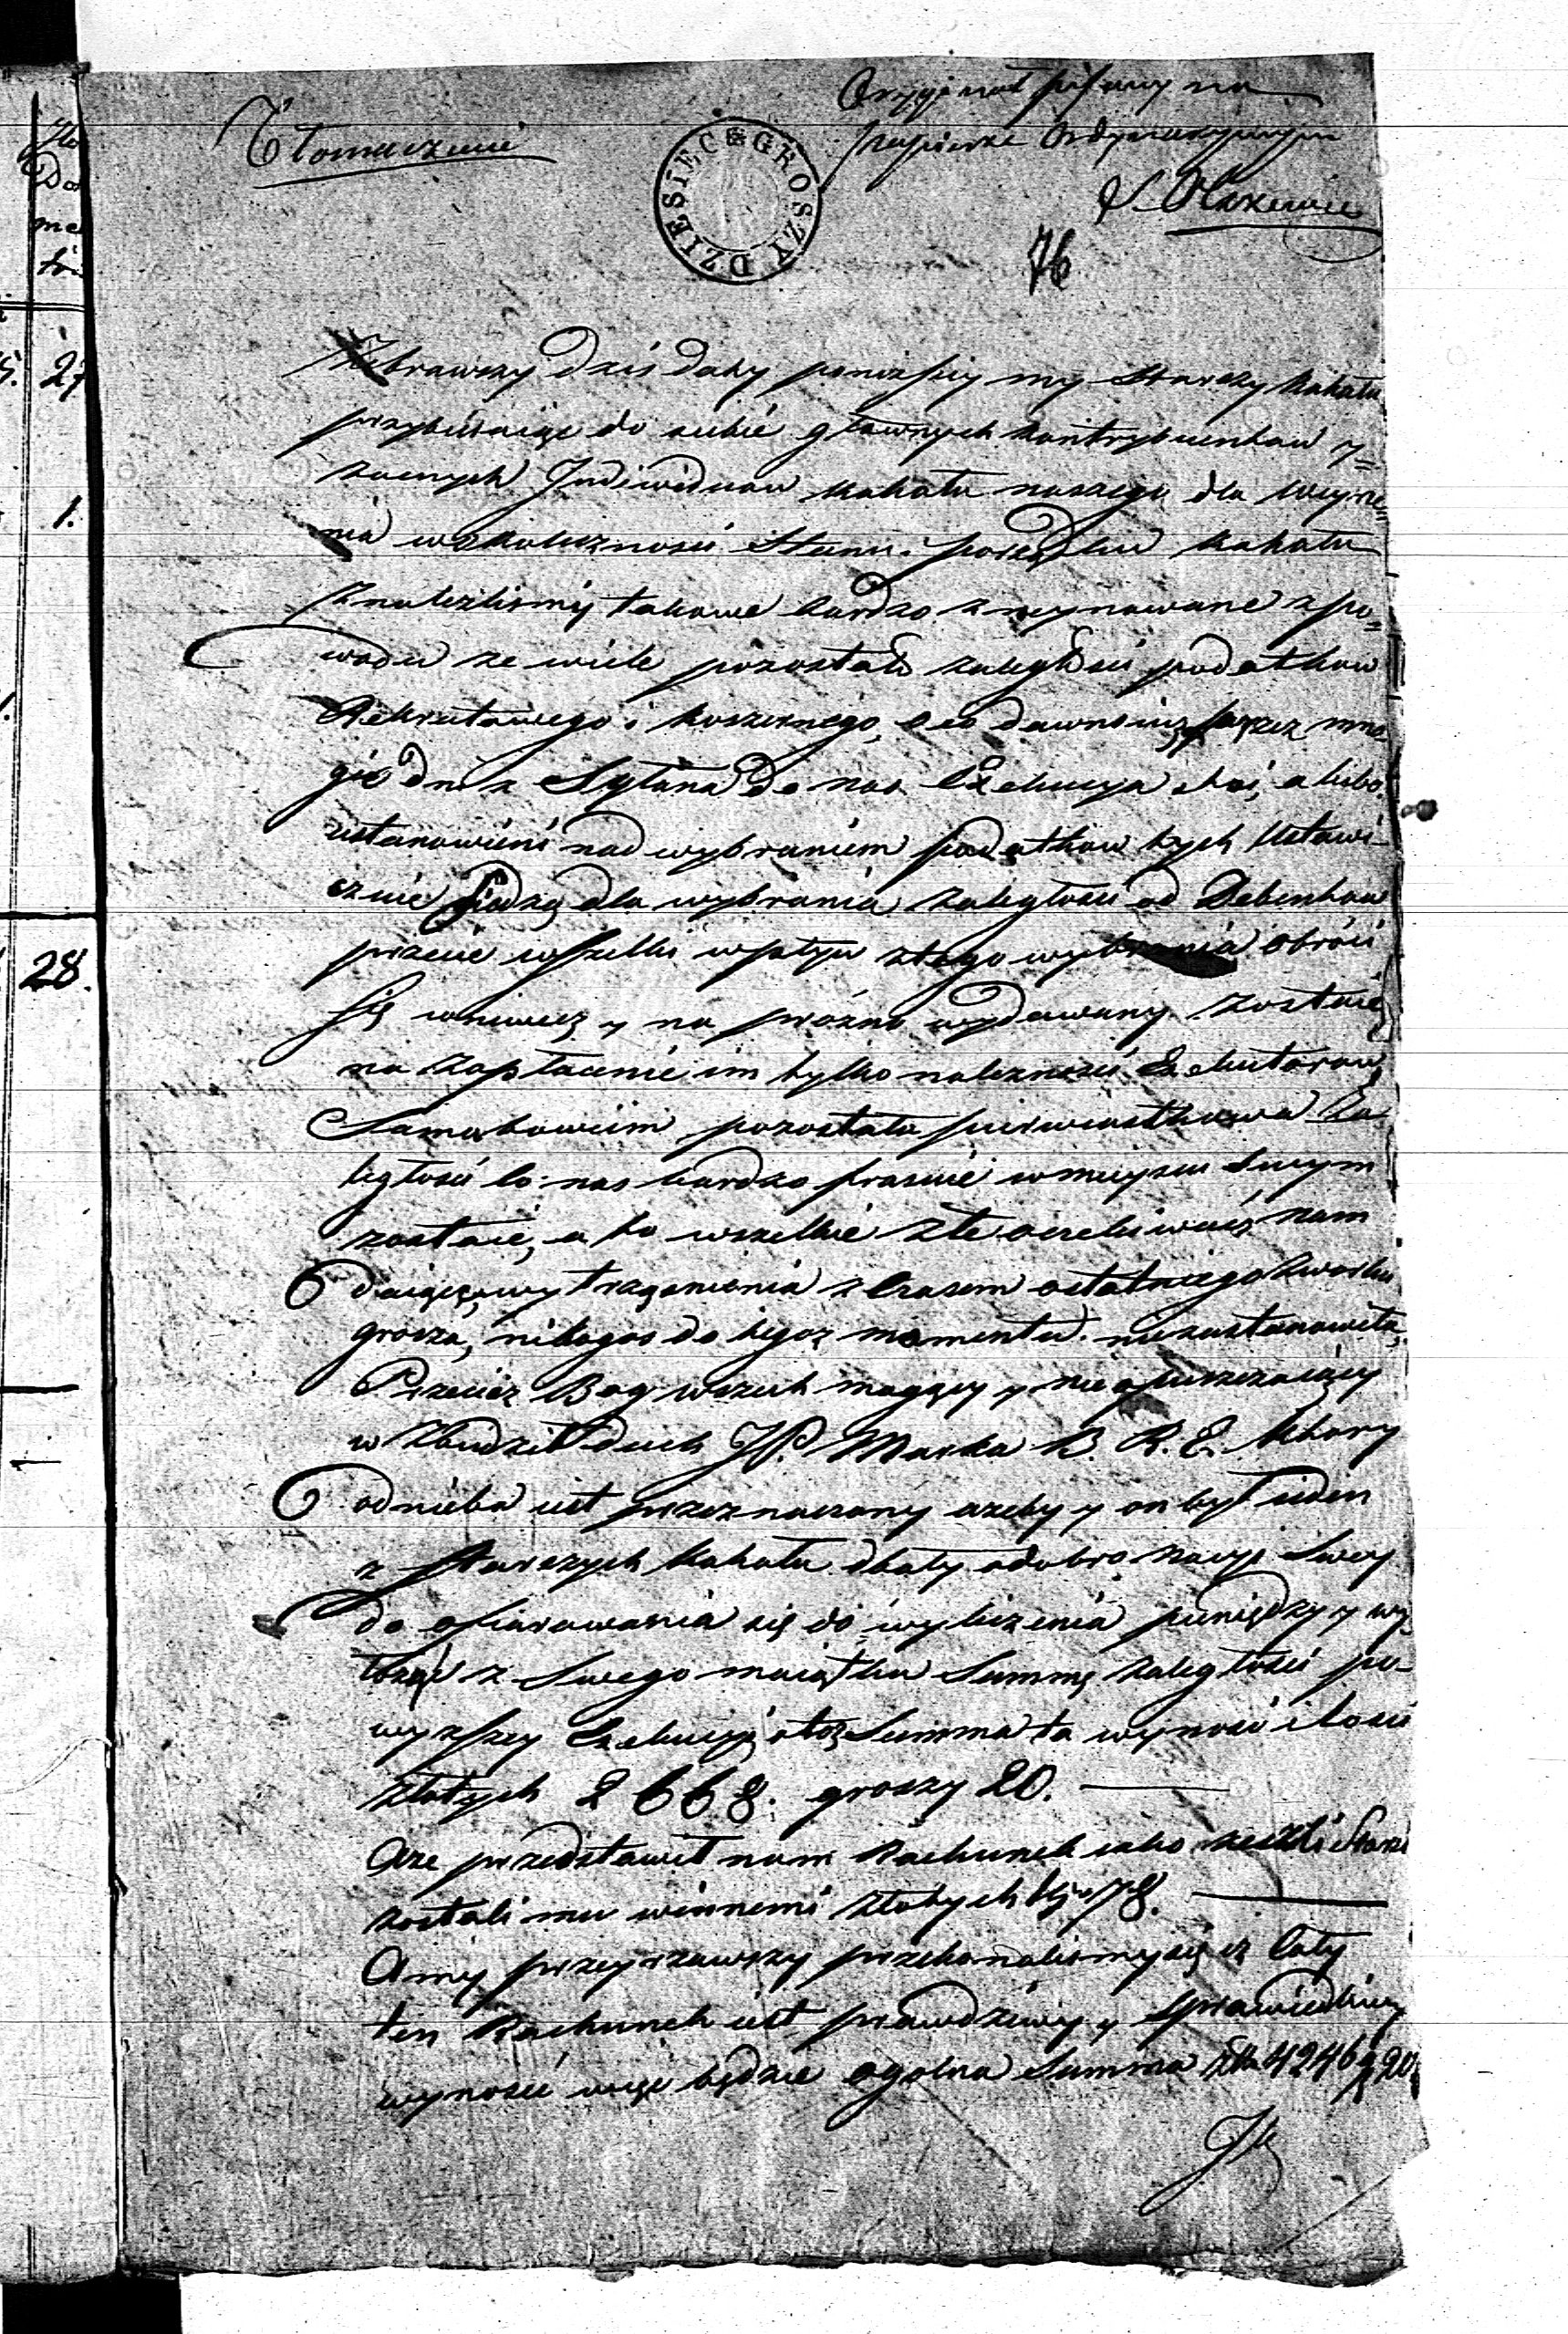 Oryginał pisany na
papierze Ordynaryjnym
Tłomaczenie
DZIESIĘĆ GROSZY
76
Zebrawszy dziś daty poniższey my Starszy kahału
przybieraiąc do siebie głownych kontrybuentow y
zacnych Indiwiduow kahału naszego dla weyrze
nia w okoliczności Stanu porządku kahału
znaleźlismy takowe bardzo zruynowane z po=
wodu że wiele pozostało zaległości podatkow
Rekrutowego i koszernego, o co dawno iuż przez mno
gie dni z Sztana do nas Exekucya stoi, a lubo
ustanowieni nad wybraniem podatkow tych Ustawi
cznie siedzą dla wybrania zaległości od Debentow
przecie wszelki wpływ z tego wybrania obróci
się w niwecz y na prózno wydawany zostaie
na zapłacenie im tylko należności Exekutorow,
Sama bowiem pozostała pierwiastkowa Za
ległość co nas bardzo prasuie w mieyscu swym
zostaie, a to wszelkie złe
daiące, wytrząsnienia z czasem ostatniego z worku
grosza, nikogo do tegoz momentu nie zastanowiło,
Przecież Bog wszech mogący y nie opuszczaiący
wzbudził duch JP. Marka B. R. E. ktory
od nieba iest przeznaczony azeby y on był ieden
z Starszych kahału dbały o dobro nacyi Swey
do ofiarowania się do wyliczenia pieniędzy y wy
łożył z Swego maiątku Summę zaległości po=
wyzszey Exekucyi, otoż Summa ta wynosi ilości
złotych 2668. groszy 20.
Oraz przedstawił nam Rachunek iako zeszli Starsi
zostali mu winnemi złotych 1578.
A my przeyrzawszy przekonalismy się iż cały
ten Rachunek iest prawdziwy y sprawiedliwy
wynosić więc będzie ogolna Summa Złł 4246 g 20